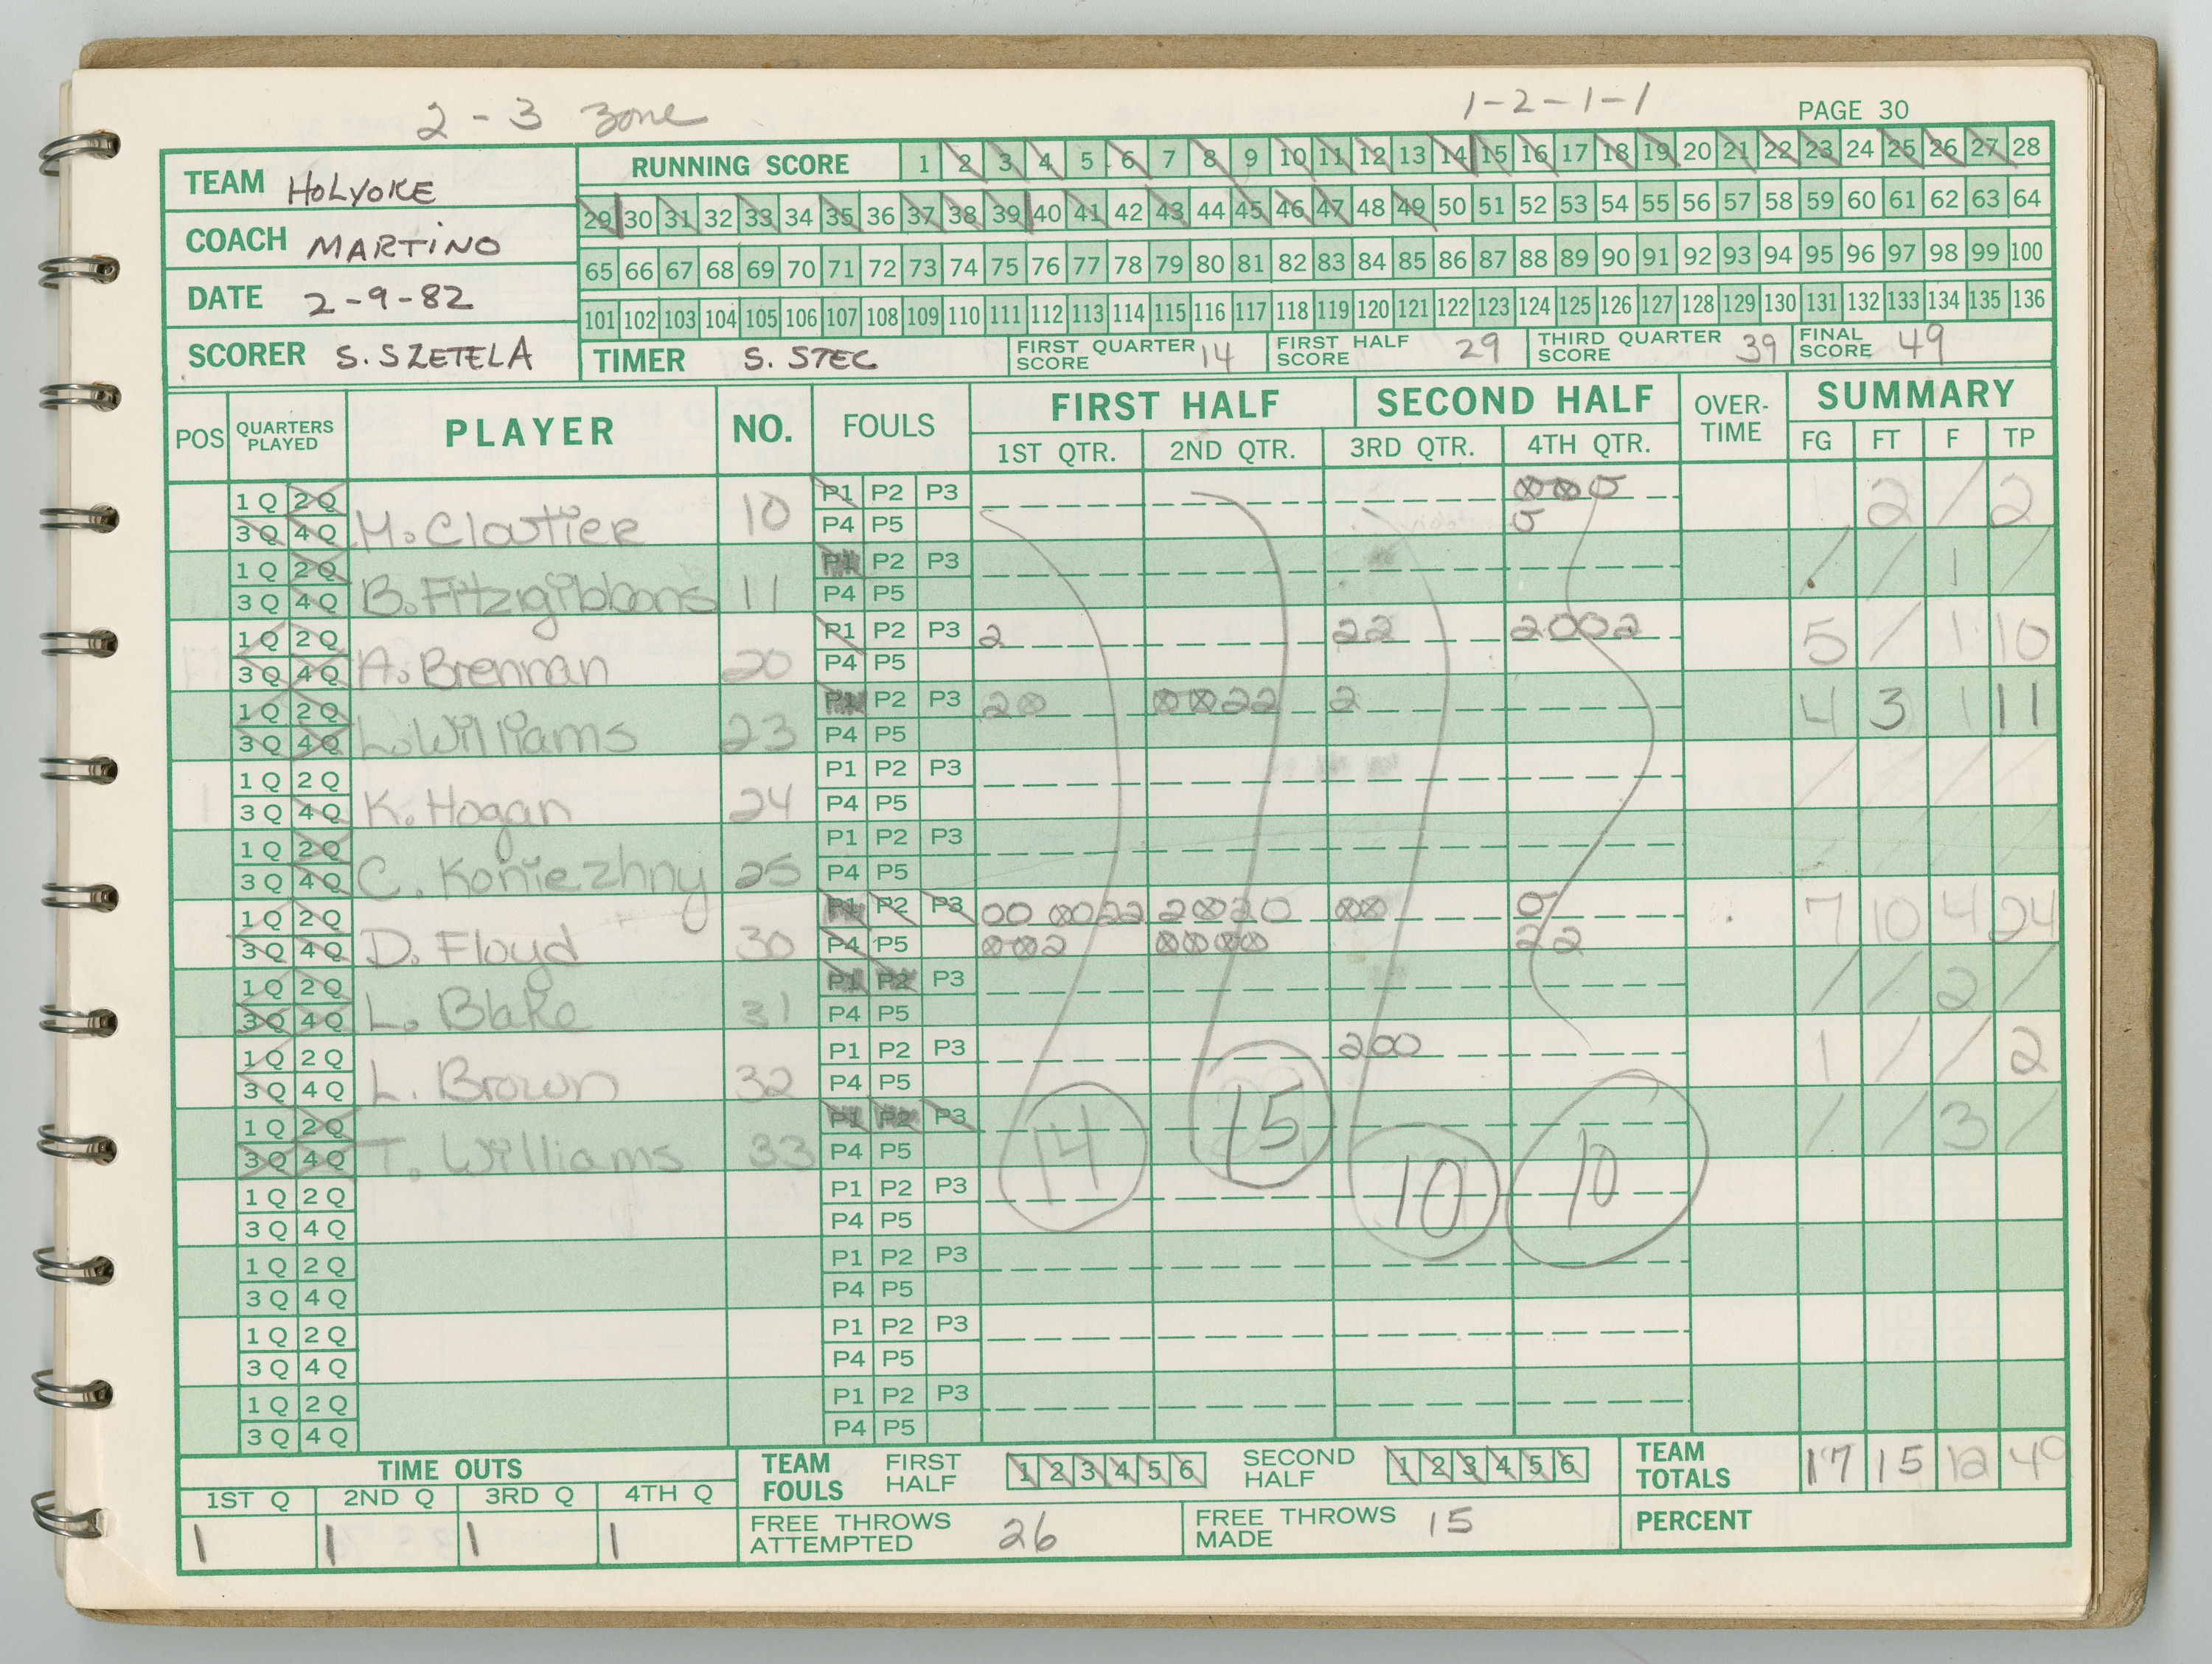 2 - 3 zone
1-2-1-1
PAGE 30
TEAM HOLYOKE
COACH MARTINO
DATE 2-9-82
SCORER S. SZETELA
RUNNING SCORE 1 2 3 4 5 6 7 8 9 10 11 12 13 14 15 16 17 18 19 20 21 22 23 24 25 26 27 28
29 30 31 32 33 34 35 36 37 38 39 40 41 42 43 44 45 46 47 48 49 50 51 52 53 54 55 56 57 58 59 60 61 62 63 64
65 66 67 68 69 70 71 72 73 74 75 76 77 78 79 80 81 82 83 84 85 86 87 88 89 90 91 92 93 94 95 96 97 98 99 100
101 102 103 104 105 106 107 108 109 110 111 112 113 114 115 116 117 118 119 120 121 122 123 124 125 126 127 128 129 130 131 132 133 134 135 136
TIMER S. STEC FIRST QUARTER SCORE 14 FIRST HALF SCORE 29 THIRD QUARTER SCORE 39 FINAL SCORE 49
POS QUARTERS PLAYED PLAYER NO. FOULS FIRST HALF SECOND HALF OVER-TIME SUMMARY
1ST QTR. 2ND QTR. 3RD QTR. 4TH QTR. FG FT F TP
1 Q 2 Q P1 P2 P3
3 Q 4 Q M. Cloutier 10 P4 P5 2 / 2
1 Q 2 Q P1 P2 P3
3 Q 4 Q B. Fitzgibbons 11 P4 P5 / / 1 /
1 Q 2 Q P1 P2 P3 2 22 2002
3 Q 4 Q A. Brennan 20 P4 P5 5 / 1 10
1 Q 2 Q P1 P2 P3 2⊗ ⊗⊗22 2
3 Q 4 Q L. Williams 23 P4 P5 4 3 1 11
1 Q 2 Q P1 P2 P3
3 Q 4 Q K. Hogan 24 P4 P5 / / / /
1 Q 2 Q P1 P2 P3
3 Q 4 Q C. Koniezhny 25 P4 P5 / / / /
1 Q 2 Q P1 P2 P3 00 ⊗022 2⊗20 ⊗⊗ 0
3 Q 4 Q D. Floyd 30 P4 P5 ⊗⊗2 ⊗⊗⊗⊗ 22 7 10 4 24
1 Q 2 Q P1 P2 P3
3 Q 4 Q L. Blake 31 P4 P5 / / 2 /
1 Q 2 Q P1 P2 P3 200
3 Q 4 Q L. Brown 32 P4 P5 1 / / 2
1 Q 2 Q P1 P2 P3
3 Q 4 Q T. Williams 33 P4 P5 / / 3 /
14 15 10 10
1 Q 2 Q P1 P2 P3
3 Q 4 Q P4 P5
1 Q 2 Q P1 P2 P3
3 Q 4 Q P4 P5
1 Q 2 Q P1 P2 P3
3 Q 4 Q P4 P5
1 Q 2 Q P1 P2 P3
3 Q 4 Q P4 P5
TIME OUTS
1ST Q 2ND Q 3RD Q 4TH Q
1 1 1 1
TEAM FOULS FIRST HALF 1 2 3 4 5 6 SECOND HALF 1 2 3 4 5 6
TEAM TOTALS 17 15 12 49
FREE THROWS ATTEMPTED 26 FREE THROWS MADE 15 PERCENT